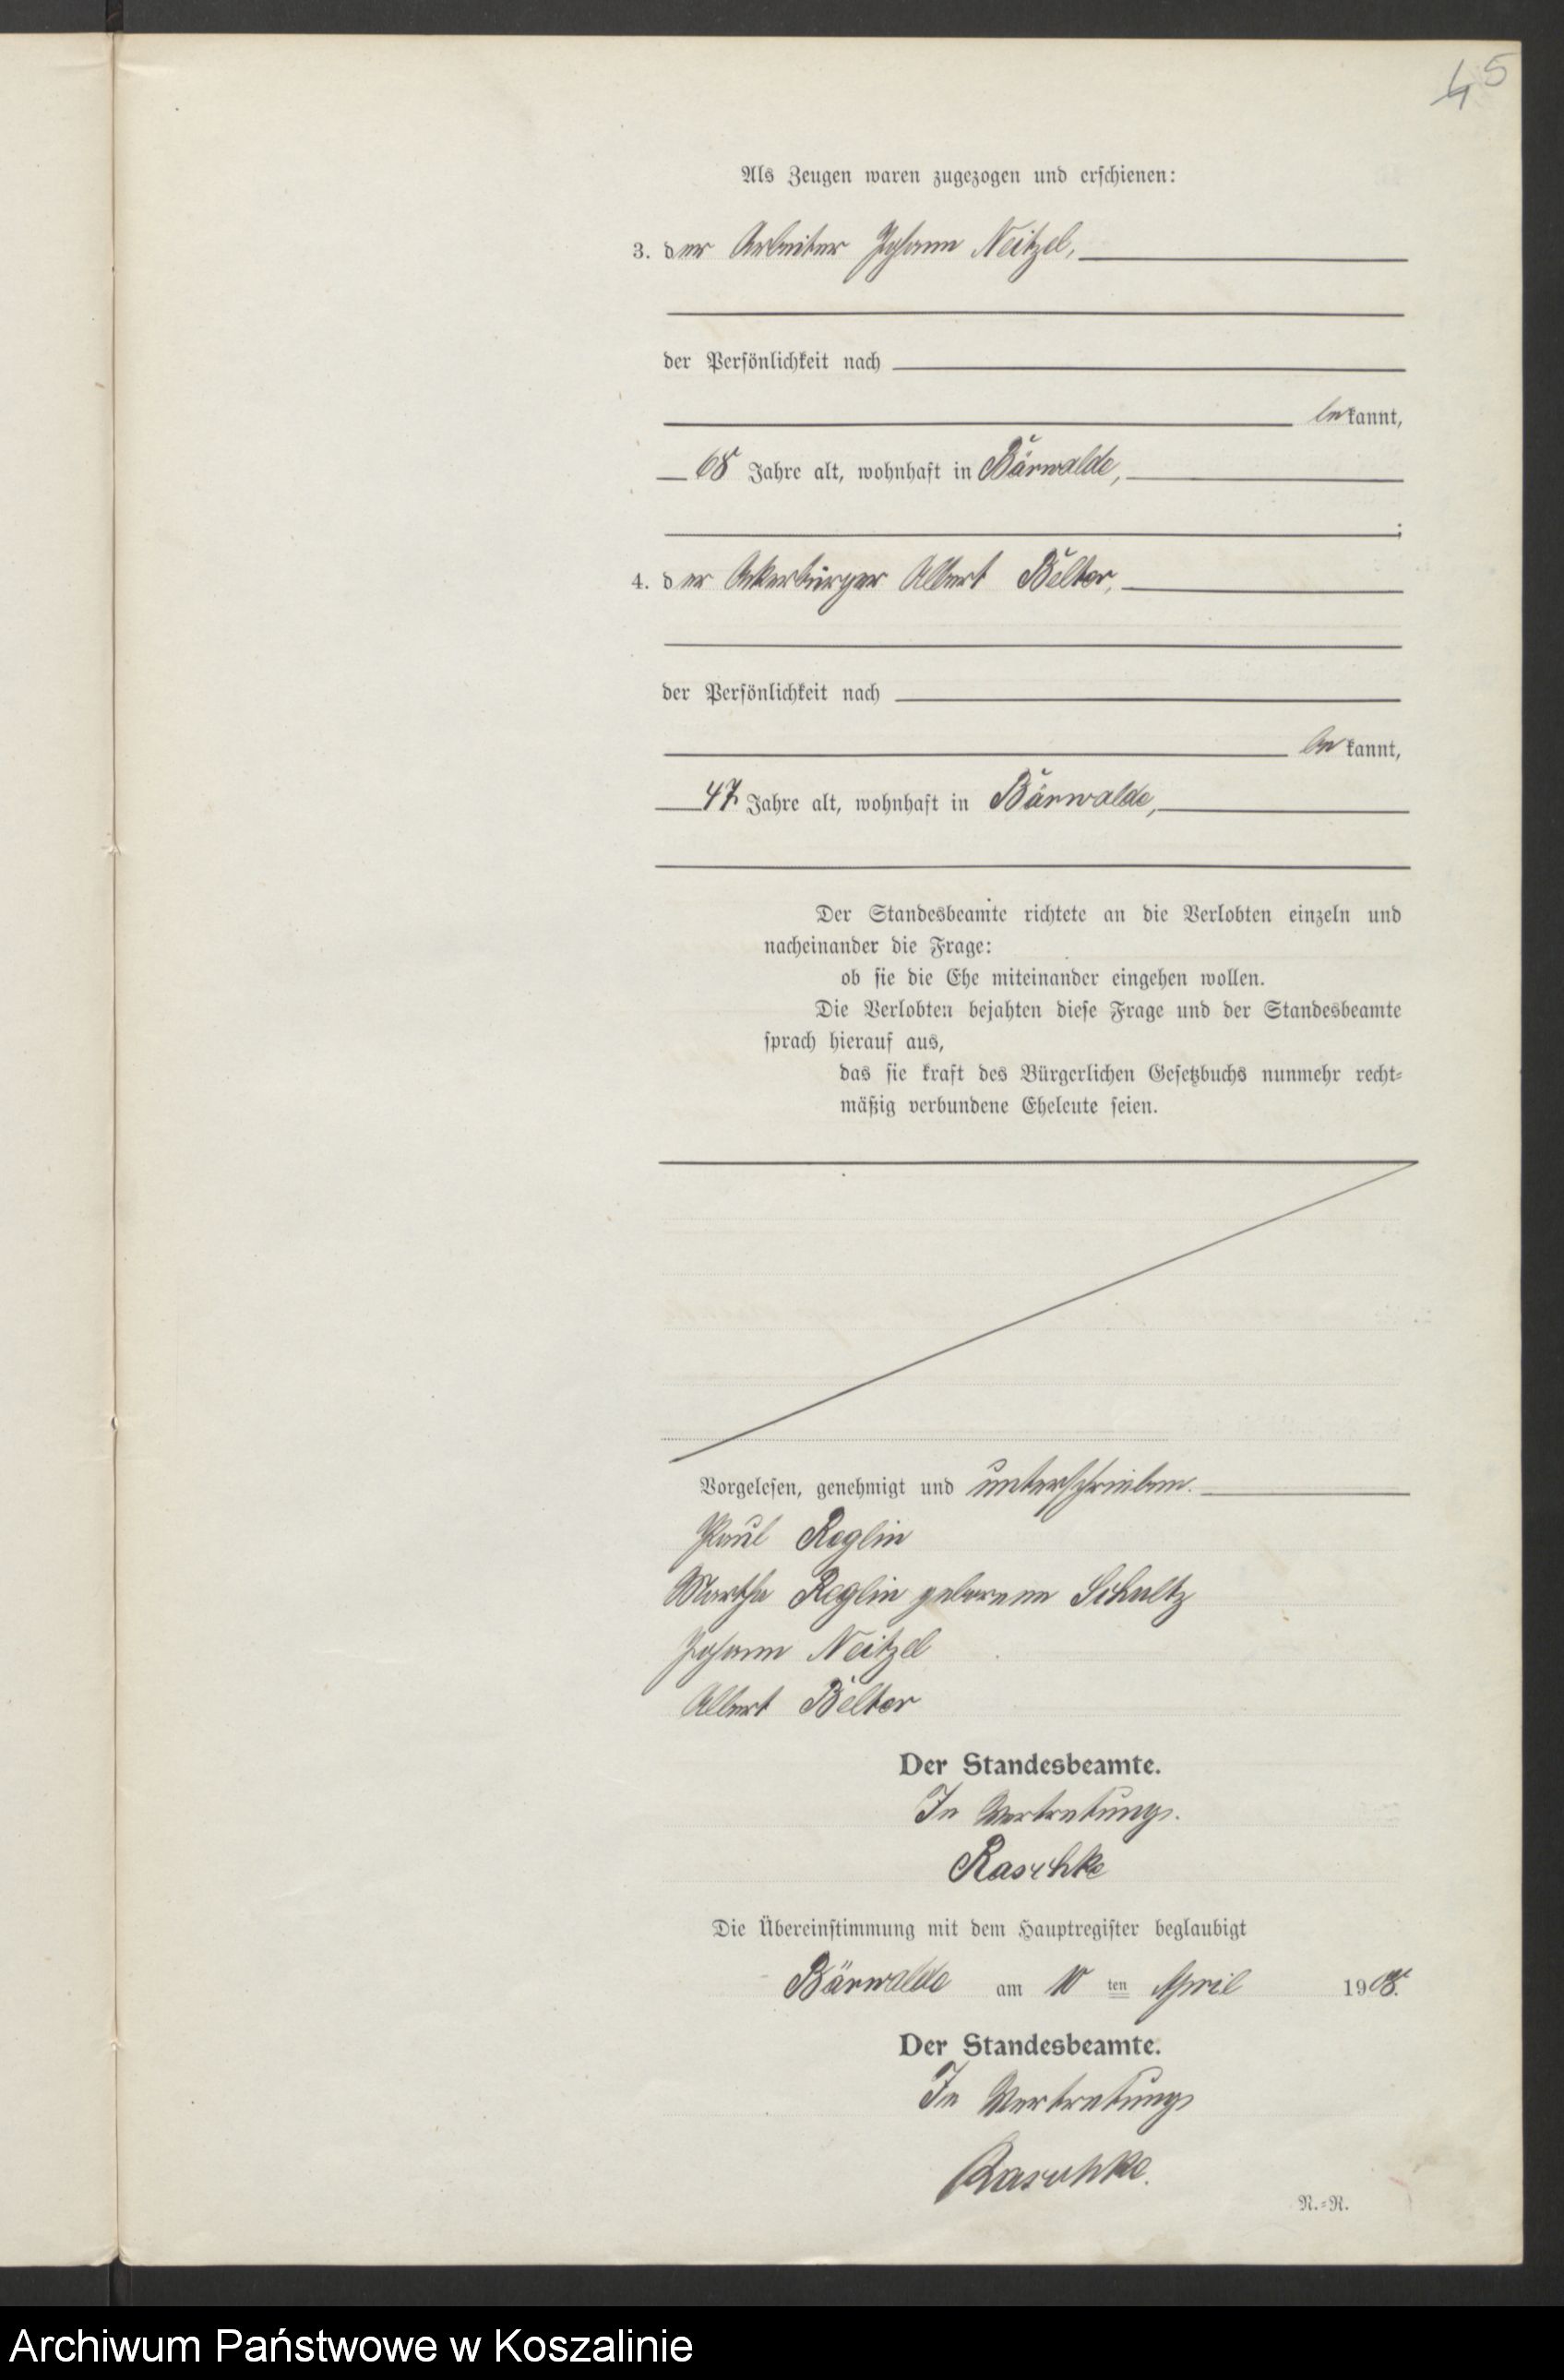 45
Als Zeugen waren zugezogen und erschienen:
3. der Arbeiter Johann Neitzel,
der Persönlichkeit nach
bekannt,
68 Jahre alt, wohnhaft in Bärwalde,
;
4. der Ackerbürger Albert Belter,
der Persönlichkeit nach
bekannt,
47 Jahre alt, wohnhaft in Bärwalde,
Der Standesbeamte richtete an die Verlobten einzeln und
nacheinander die Frage:
ob sie die Ehe miteinander eingehen wollen.
Die Verlobten bejahten diese Frage und der Standesbeamte
sprach hierauf aus,
das sie kraft des Bürgerlichen Gesetzbuchs nunmehr recht-
mäßig verbundene Eheleute seien.
Vorgelesen, genehmigt und unterschrieben.
Paul Reglin
Martha Reglin geborene Schultz
Johann Neitzel
Albert Belter
Der Standesbeamte.
In Vertretung.
Raschke
Die Übereinstimmung mit dem Hauptregister beglaubigt
Bärwalde am 10 ten April 1908.
Der Standesbeamte.
In Vertretung
Raschke.
N.-R.
Archiwum Państwowe w Koszalinie